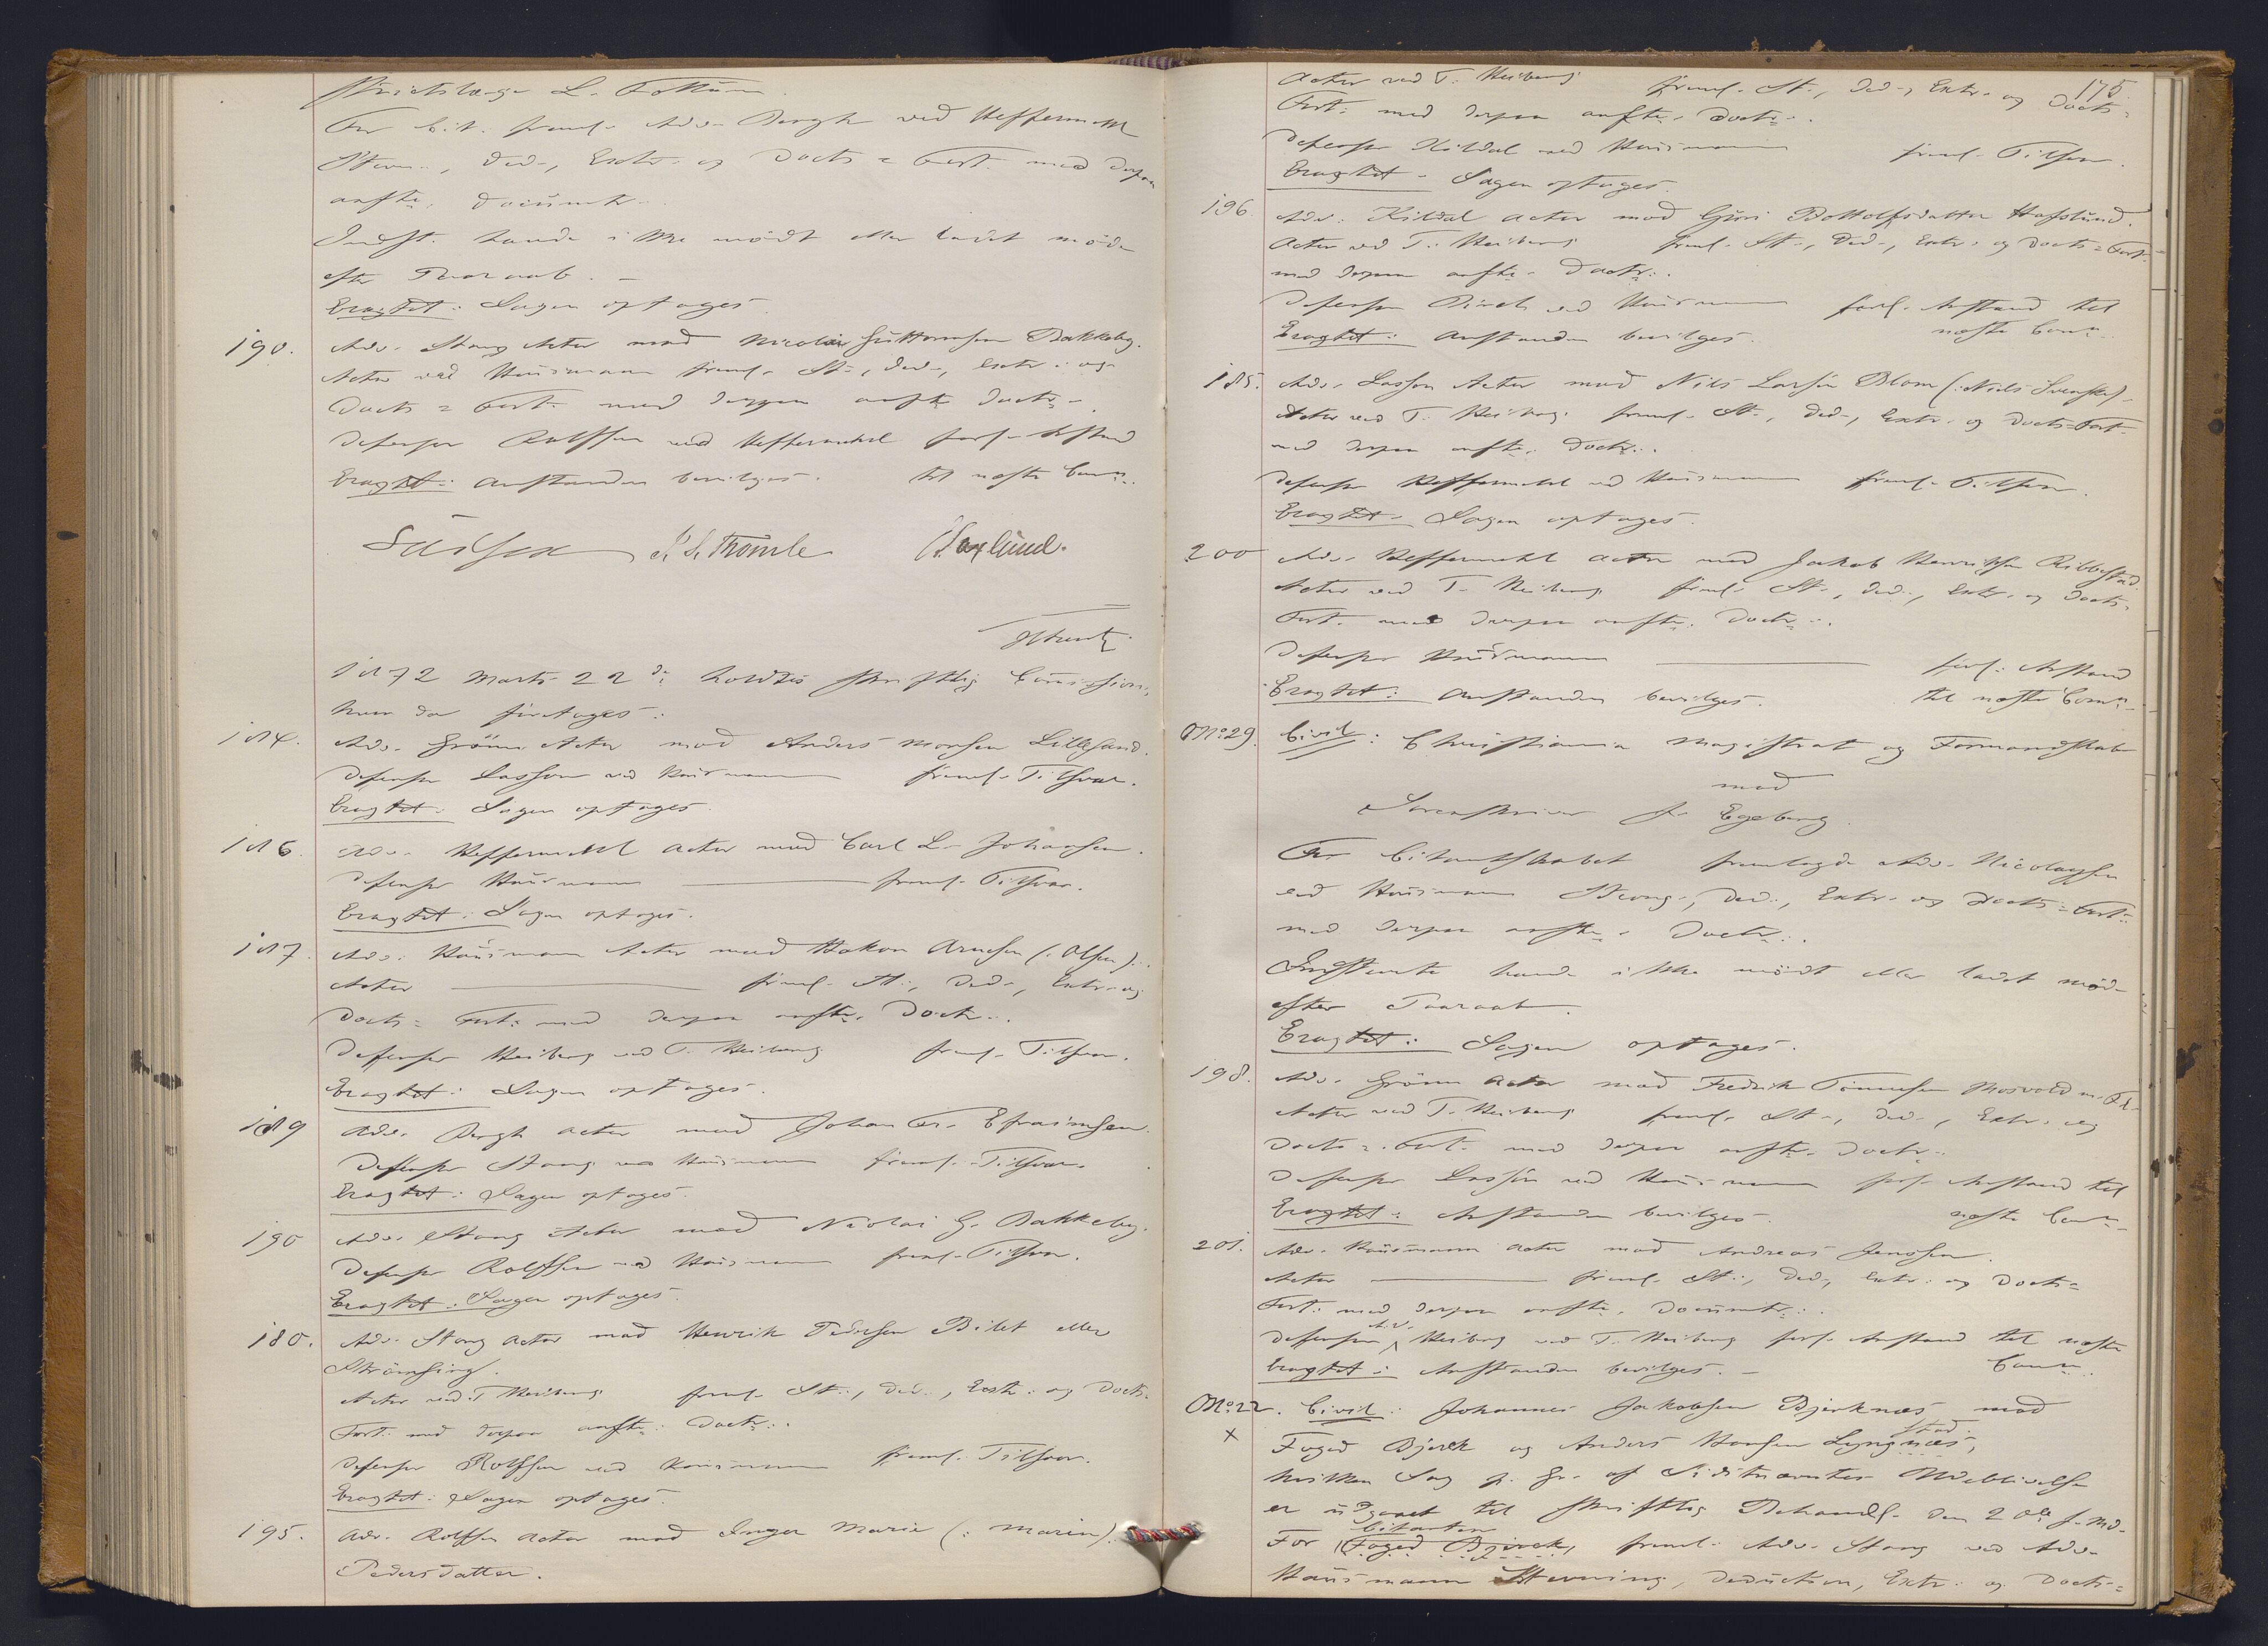 Distriktslæge L. Fottum.
For Cit. freml. Adv. Bergh ved Heffermehl
Stevn., Ded., Extr. og Docts = Fort. med derpaa
anfte. Documtr.
Indst. havde ikke mödt eller ladet möde
efter Paaraab. –
Eragtet: Sagen optages.
190. Adv. Stang Actor mod Nicolai Guttormsen Bakkeby.
Actor ved Hausmann freml. St., Ded., Extr. og
Docts = Fort. med derpaa anfte Doctr.
Defensor Rolfsen ved Heffermehl forl. Anstand
Eragtet: Anstanden bevilges. til næste Comn.
P. L. Thomle

1872 Marts 22de holdtes skriftlig Commission,
hvor da foretoges:
184. Adv. Grönn Actor mod Anders Monsen Lillesand.
Defensor Lasson ved Hausmann freml. Tilsvar.
Eragtet: Sagen optages.
186. Adv. Heffermehl Actor mod Carl L. Johansen.
Defensor Hausmann freml. Tilsvar.
Eragtet: Sagen optages.
187. Adv. Hausmann Actor mod Hakon Arnesen (: Olsen).
Actor freml. St., Ded., Extr. og
Docts = Fort. med derpaa anfte. Doctr.
Defensor Heiberg ved T. Heiberg freml. Tilsvar.
Eragtet: Sagen optages.
189 Adv. Bergh Actor mod Johan Efraimsen.
Defensor Stang ved Hausmann freml. Tilsvar.
Eragtet: Sagen optages.
190 Adv. Stang Actor mod Nicolai G. Bakkeby.
Defensor Rolfsen ved Hausmann freml. Tilsvar.
Eragtet: Sagen optages.
180. Adv. Stang Actor mod Henrik Pedersen Bilet eller
Strömsing.
Actor ved T Heiberg freml. St., Ded., Extr. og Docts.
Fort. med derpaa anfte. Doctr.
Defensor Rolfsen ved Hausmann freml. Tilsvar.
Eragtet: Sagen optages.
195. Adv. Rolfsen Actor mod Inger Marie (: Maren)
Pedersdatter.
175.
Actor ved T. Heiberg freml. St., Ded., Extr. og Docts =
Fort. med derpaa anfte. Doctr.
Defensor Kildal ved Hausmann freml. Tilsvar.
Eragtet – Sagen optages.
196. Adv. Kildal Actor mod Guri Bottolfsdatter Hafslund.
Actor ved T. Heiberg freml. St., Ded., Extr. og Docts = Fort.
med derpaa anfte. Doctr.
Defensor ved Hausmann forl. Anstand til
Eragtet: Anstanden bevilges. næste Comn.
185. Adv. Lasson Actor mod Nils Larsen Blom (: Niels Svenske)
Actor ved T. Heiberg freml. St., Ded., Extr. og Docts = Fort.
med derpaa anfte. Doctr.
Defensor Heffermehl ved Hausmann freml. Tilsvar.
Eragtet – Sagen optages.
200 Adv. Heffermehl Actor mod Jakob Henriksen Ribbestad.
Actor ved T. Heiberg freml. St., Ded., Extr. og Docts =
Fort. med derpaa anfte. Doctr.
Defensor Hausmann forl. Anstand
Eragtet: Anstanden bevilges. til næste Comn.
No 29. Civil: Christiania Magistrat og Formandskab
mod
Sorenskriver F. Egeberg.
For Citantskabet fremlagde Adv. Nicolaysen
ved Hausmann Stevng., Ded., Extr. og Docts = Fort.
med derpaa anfte. Doctr.
Indstevnte havde ikke mödt eller ladet möde
efter Paaraab.
Eragtet: Sagen optages.
198. Adv. Grönn Actor mod Fredrik Tönnesen Mosvold m. Fl.
Actor ved T. Heiberg freml. St., Ded., Extr. og
Docts = Fort. med derpaa anfte. Doctr.
Defensor Lasson ved Hausmann forl. Anstand til
Eragtet: Anstanden bevilges. næste Comn.
201. Adv. Hausmann Actor mod Andreas Jensen.
Actor freml. St., Ded., Extr. og Docts =
Fort. med derpaa anfte. Documtr.
Defensor Heiberg ved T. Heiberg forl. Anstand til næste
Eragtet: Anstanden bevilges. – Comn.
No 22. Civil: Johannes Jakobsen Bjerknæs mod
x Foged Bjerck og Anders Hansen Lyngnæs, stad.
hvilken Sag p. Gr. af Udeblivelse
er udgaaet til skriftlig Behandl. den f. Md.
For (Foged Bjerck) Citanten freml. Adv. Stang ved Adv.
Hausmann Stevning, Deduction, Extr. og Docts =